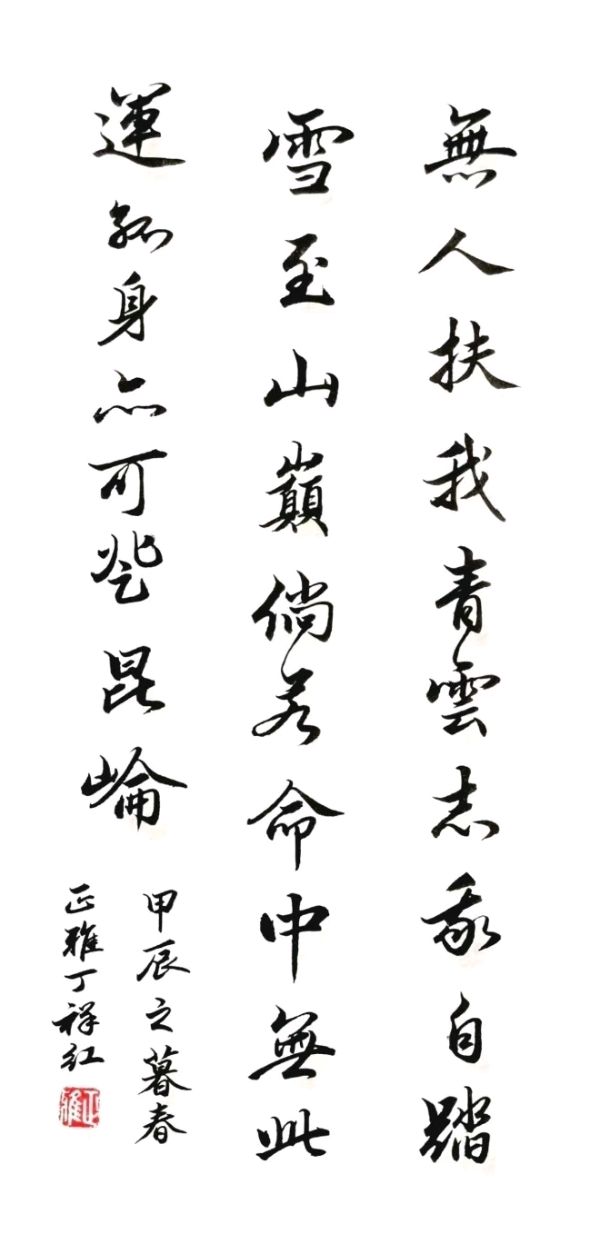 無人扶我青雲志我自踏
雪至山巔倘若命中無此
運孤身亦可登昆崙
甲辰之暮春
正雅丁祥红
正雅